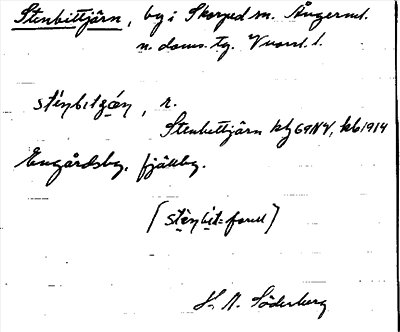 Stenbittjärn, by i Skorped sn. Ångerml.
n. doms. tg. Vnord. l.
stènbitʒá̀n, r.
Stenbittjärn kbg 69 N4, kb 1914
Engårdsby. fjällby.
[stènbit=forell]
H. N. Söderberg